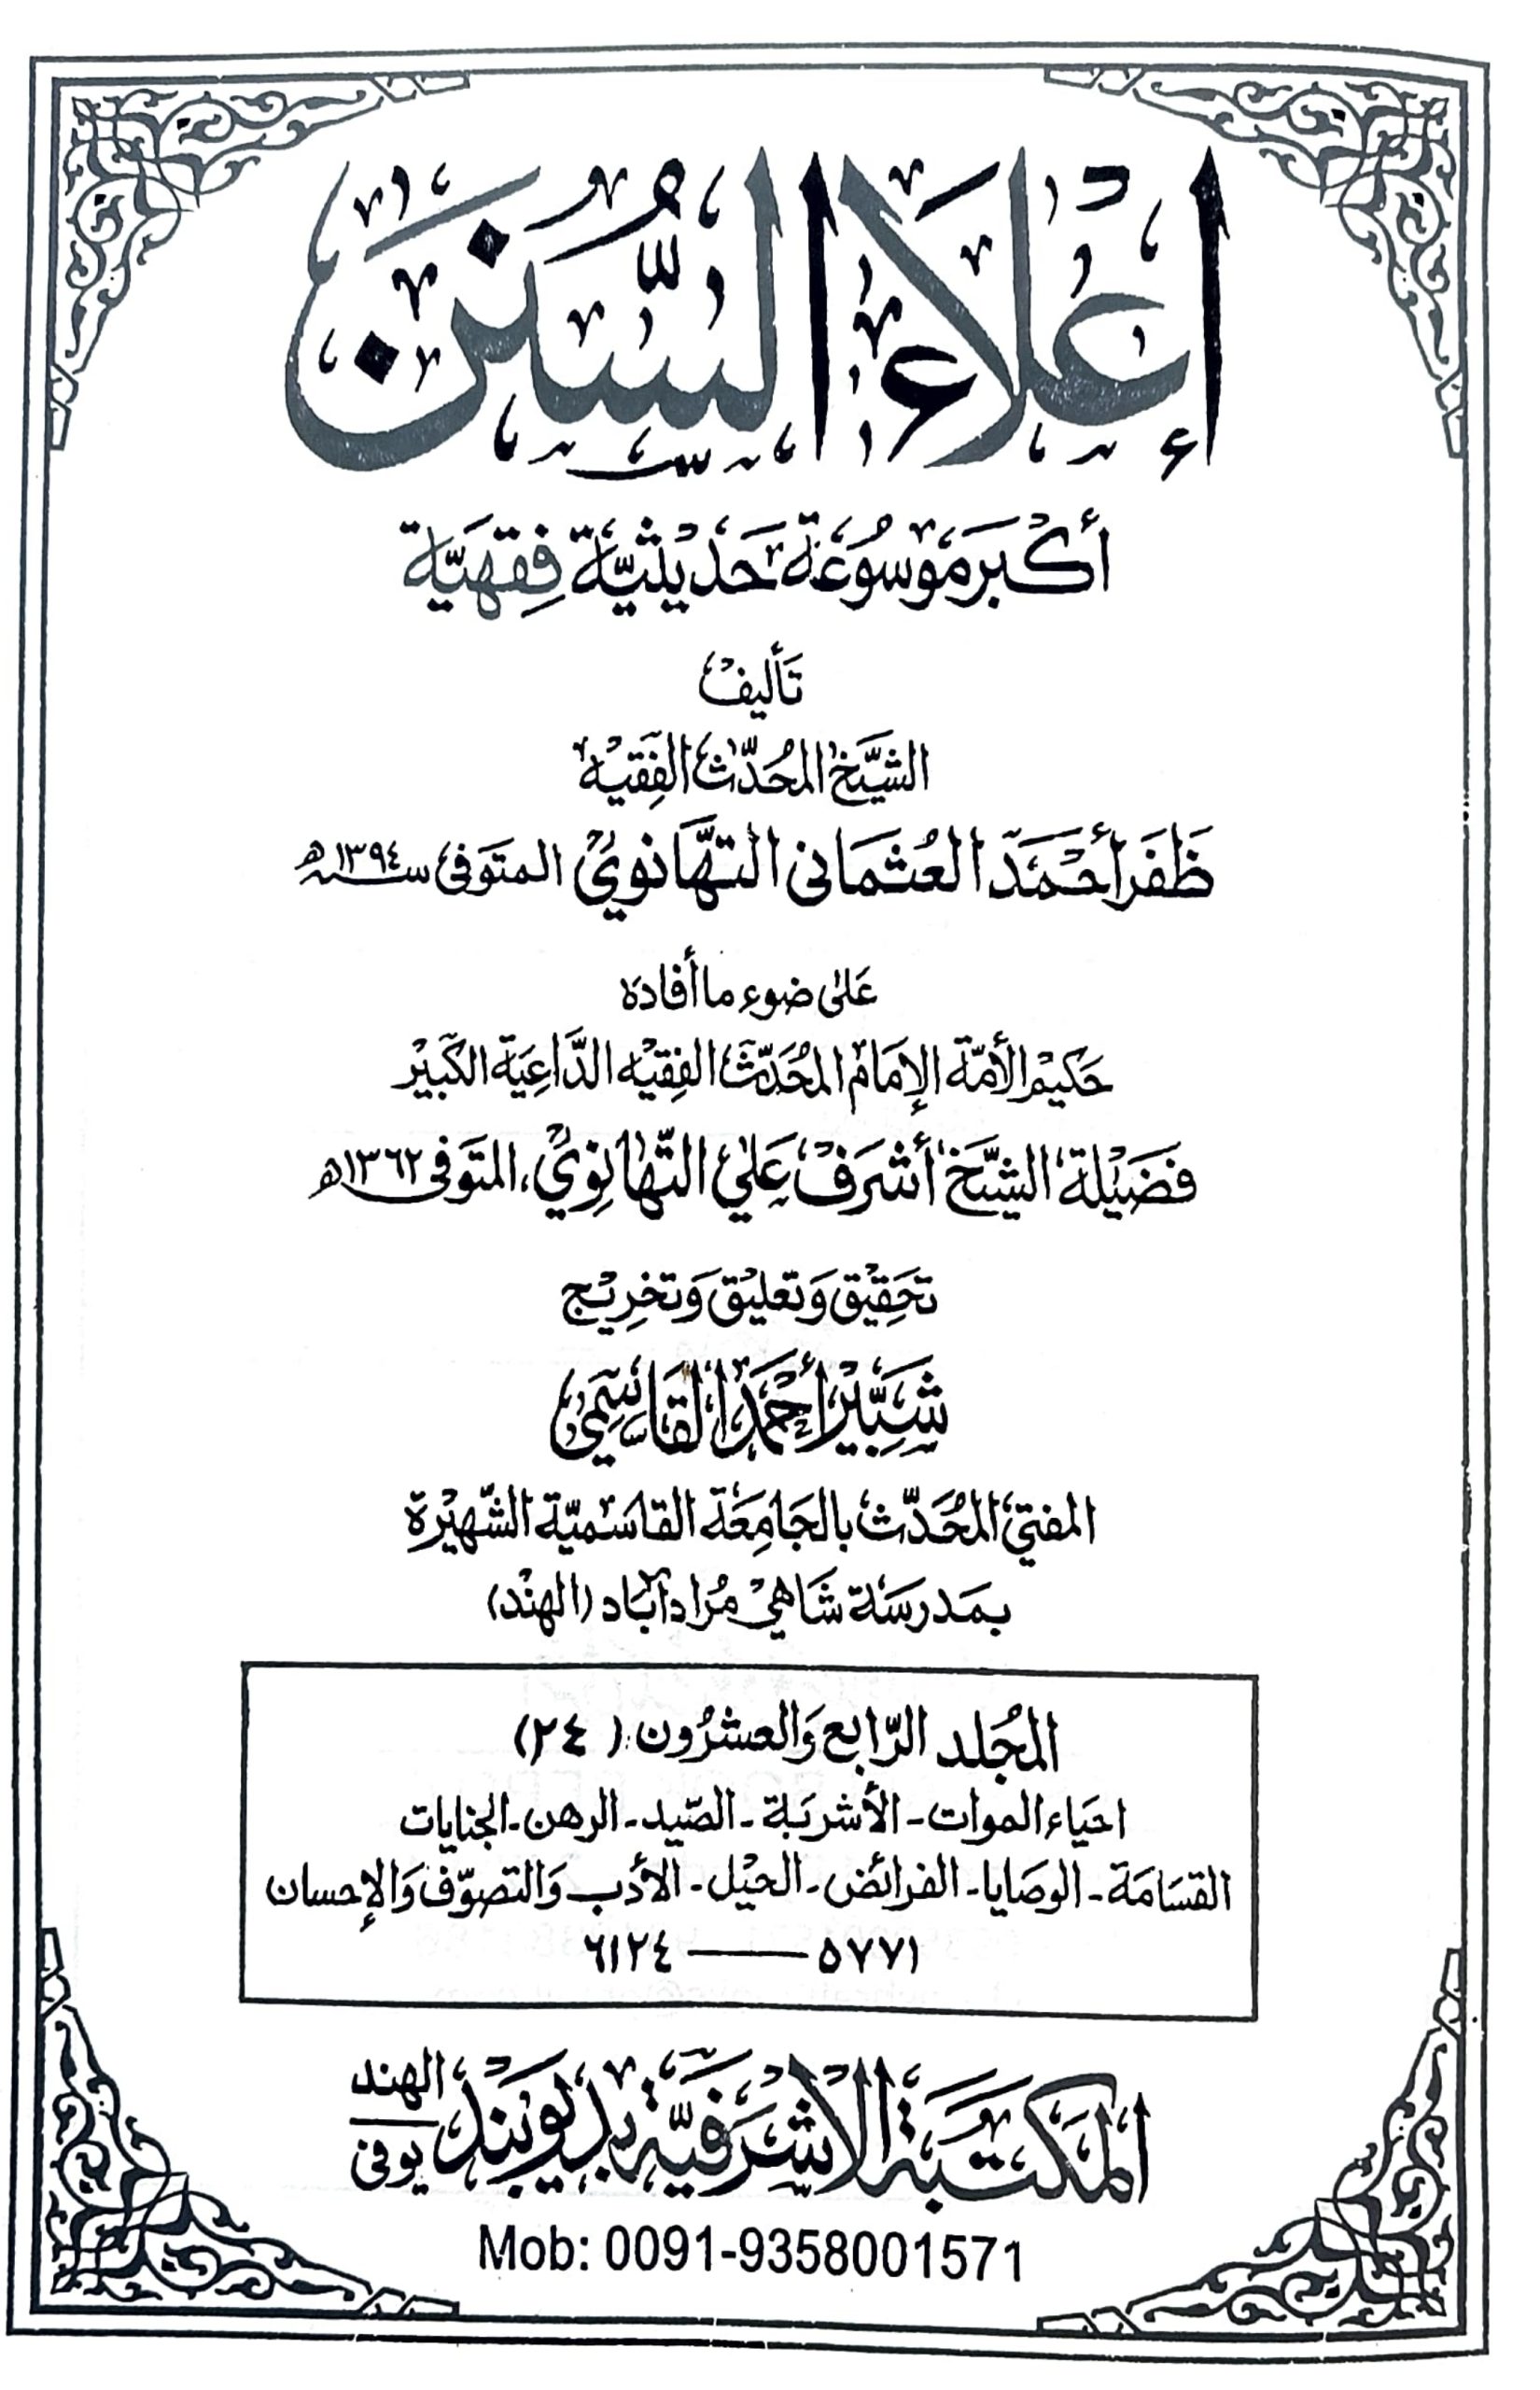 إعلاء السنن
أكبر موسوعة حديثية فقهية
تأليف
الشيخ المحدث الفقيه
ظفر أحمد العثماني التهانوي المتوفى سنة ١٣٩٤ھ
على ضوء ما أفاده
حكيم الأمة الإمام المحدث الفقيه الداعية الكبير
فضيلة الشيخ أشرف علي التهانوي، المتوفى ١٣٦٢ھ
تحقيق وتعليق وتخريج
شبير أحمد القاسمي
المفتي المحدث بالجامعة القاسمية الشهيرة
بمدرسة شاهي مرادآباد (الهند)
المجلد الرابع والعشرون (٢٤)
احياء الموات - الأشربة - الصيد - الرهن - الجنايات
القسامة - الوصايا - الفرائض - الحيل - الأدب والتصوف والإحسان
٥٧٧١ —— ٦١٢٤
المكتبة الاشرفية بديوبند الهند
يوفى
Mob: 0091-9358001571